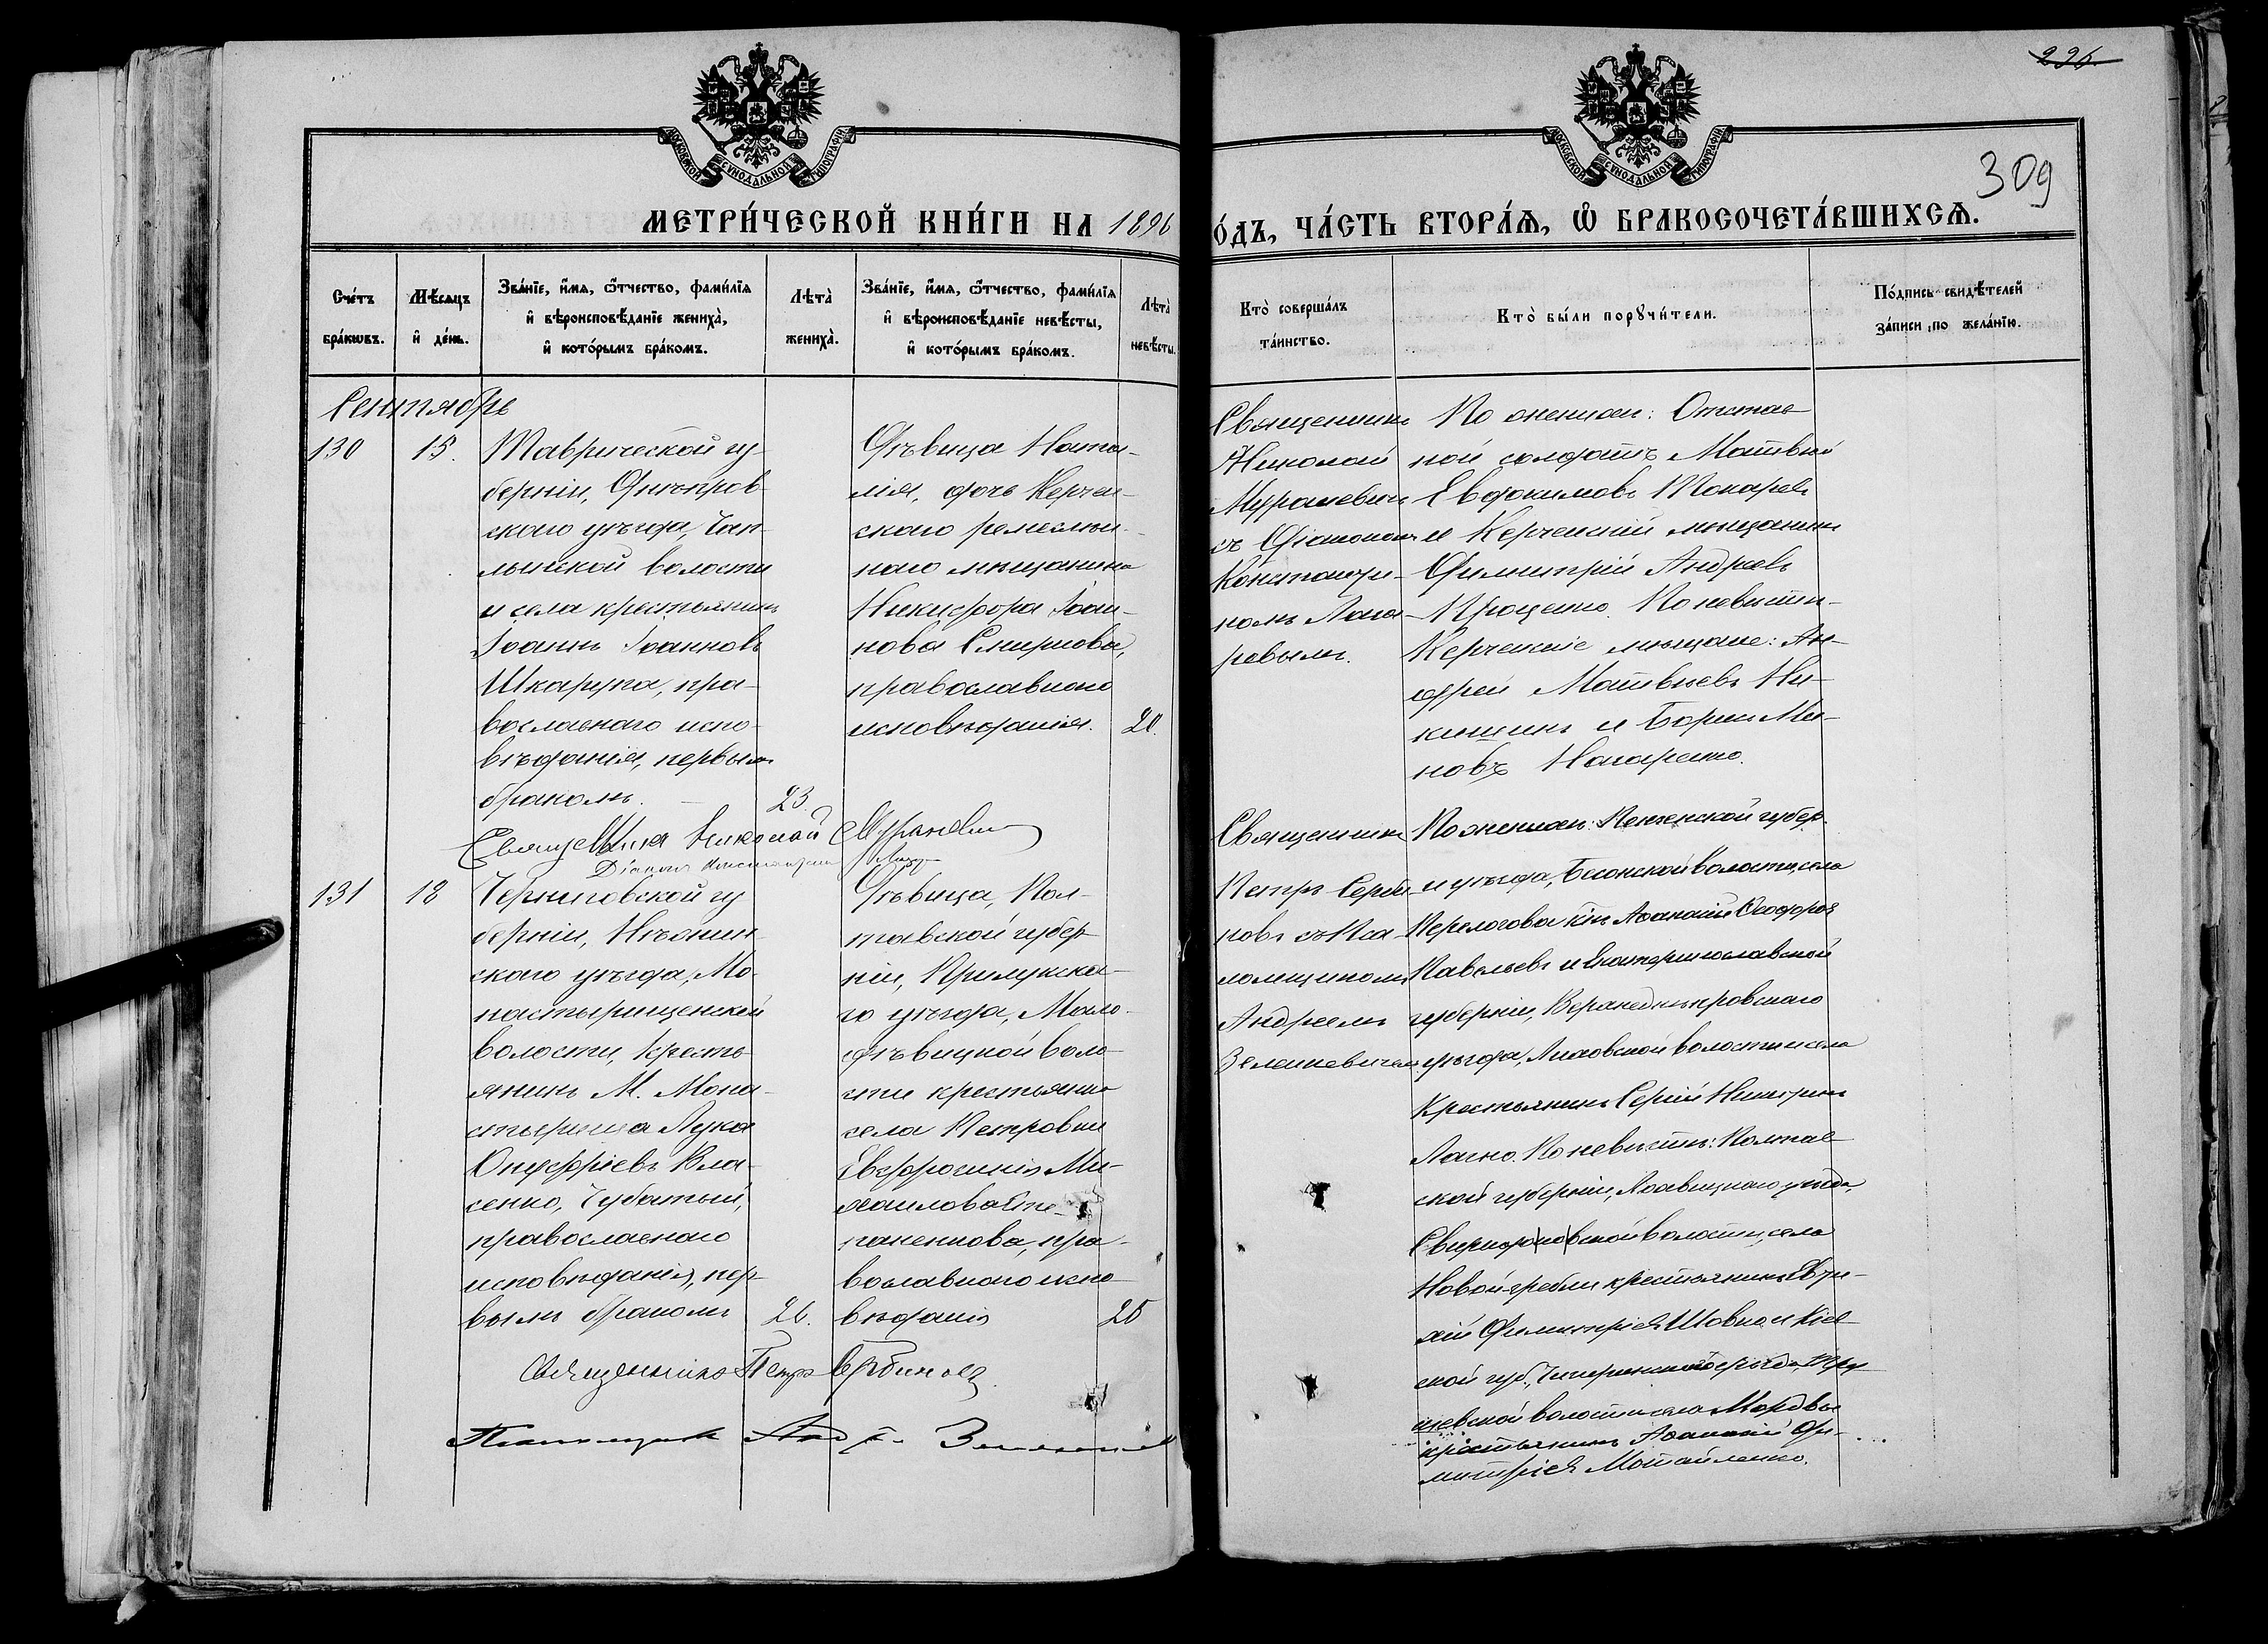 226
309
МОСКОВСКОЙ СѴНОДАЛЬНОЙ ТИПОГРАФІИ
МОСКОВСКОЙ СѴНОДАЛЬНОЙ ТИПОГРАФІИ
МЕТРИ́ЧЕСКОЙ КНИ́ГИ НА 1896
О́ДЪ, ЧА́СТЬ ВТОРА́Ѧ, Ѡ҆ БРАКОСОЧЕТА́ВШИХСѦ.
Сче́тъ бра́кѡвъ.
Мѣ́сѧцъ и҆ де́нь.
Зва́нїе, и҆́мѧ, ѻ҆́тчество, фами́лїѧ
и҆ вѣроисповѣ́данїе жениха̀,
и҆ кото́рымъ бра́комъ.
Лѣта̀ жениха̀.
Зва́нїе, и҆́мѧ, ѻ҆́тчество, фами́лїѧ
и҆ вѣроисповѣ́данїе невѣ́сты,
и҆ кото́рымъ бра́комъ.
Лѣта̀ невѣ́сты.
Кто̀ соверша́лъ
та́инство.
Кто̀ бы́ли порꙋчи́тели.
По́дпись свидѣ́телей
за́писи по жела́нїю.
Сентябрь
130
15.
Таврической гу-
берніи, Днѣпров-
скаго уѣзда, Чап-
лынской волости
и села крестьянинъ
Іоаннъ Іоанновъ
Шкарупа, пра-
вославнаго испо-
вѣданія, первымъ
бракомъ.
23.
Дѣвица Ната-
лія, дочь Керчен-
скаго ремеслен-
наго мѣщанина
Никифора Іоан-
нова Смирнова,
православнаго
исповѣданія.
20.
Священникъ
Николай
Мураневичъ
съ Діакономъ
Константи-
номъ Лаза-
ревымъ.
По женихѣ: Отстав-
ной солдатъ Матвѣй
Евдокимовъ Токаревъ
и Керченскій мѣщанинъ
Димитрій Андреевъ
Проценко. По невѣстѣ:
Керченскіе мѣщане: Ан-
дрей Матвѣевъ Ни-
кишинъ и Борисъ
новъ Назаренко.
Священникъ Николай Мураневич
Діаконъ Константин
131
18
Черниговской гу
берніи, Нѣжин-
скаго уѣзда, Мо-
настырищенской
волости, кресть-
янинъ М. Мона-
стырища Лука
Онуфріевъ Вла-
сенко, Чубатый,
православнаго
исповѣданія, пер-
вымъ бракомъ
26.
Дѣвица, Пол-
тавской губер-
ніи, Прилукска-
го уѣзда, Мало-
дѣвицкой воло-
сти крестьянка
села Петровки
Евфросинія Ми-
хаилова Сте-
паненкова, пра-
вославнаго испо-
вѣданія
25
Священникъ
Петръ Серби-
новъ съ Пса-
ломщикомъ
Андреемъ
Зелинкевичемъ
По женихѣ: Пензенской губер.
и уѣзда, волости, села
кр. Аѳанасій Ѳеодоровъ
Савельевъ и Екатеринославской
губерніи, Верхнеднѣпровскаго
уѣзда, Лиховской волости и села
Крестьянинъ Сергій
По невѣстѣ: Полтав-
ской губерніи, Лохвицкаго уѣзда,
волости, села
Новой-гребли крестьянинъ
Димитріевъ и Кіев-
ской губ., Чигиринскаго уѣзда,
волости села Мордвы
крестьянинъ Аѳанасій Ди-
митріевъ
Священникъ Петръ Сербиновъ
Псаломщикъ